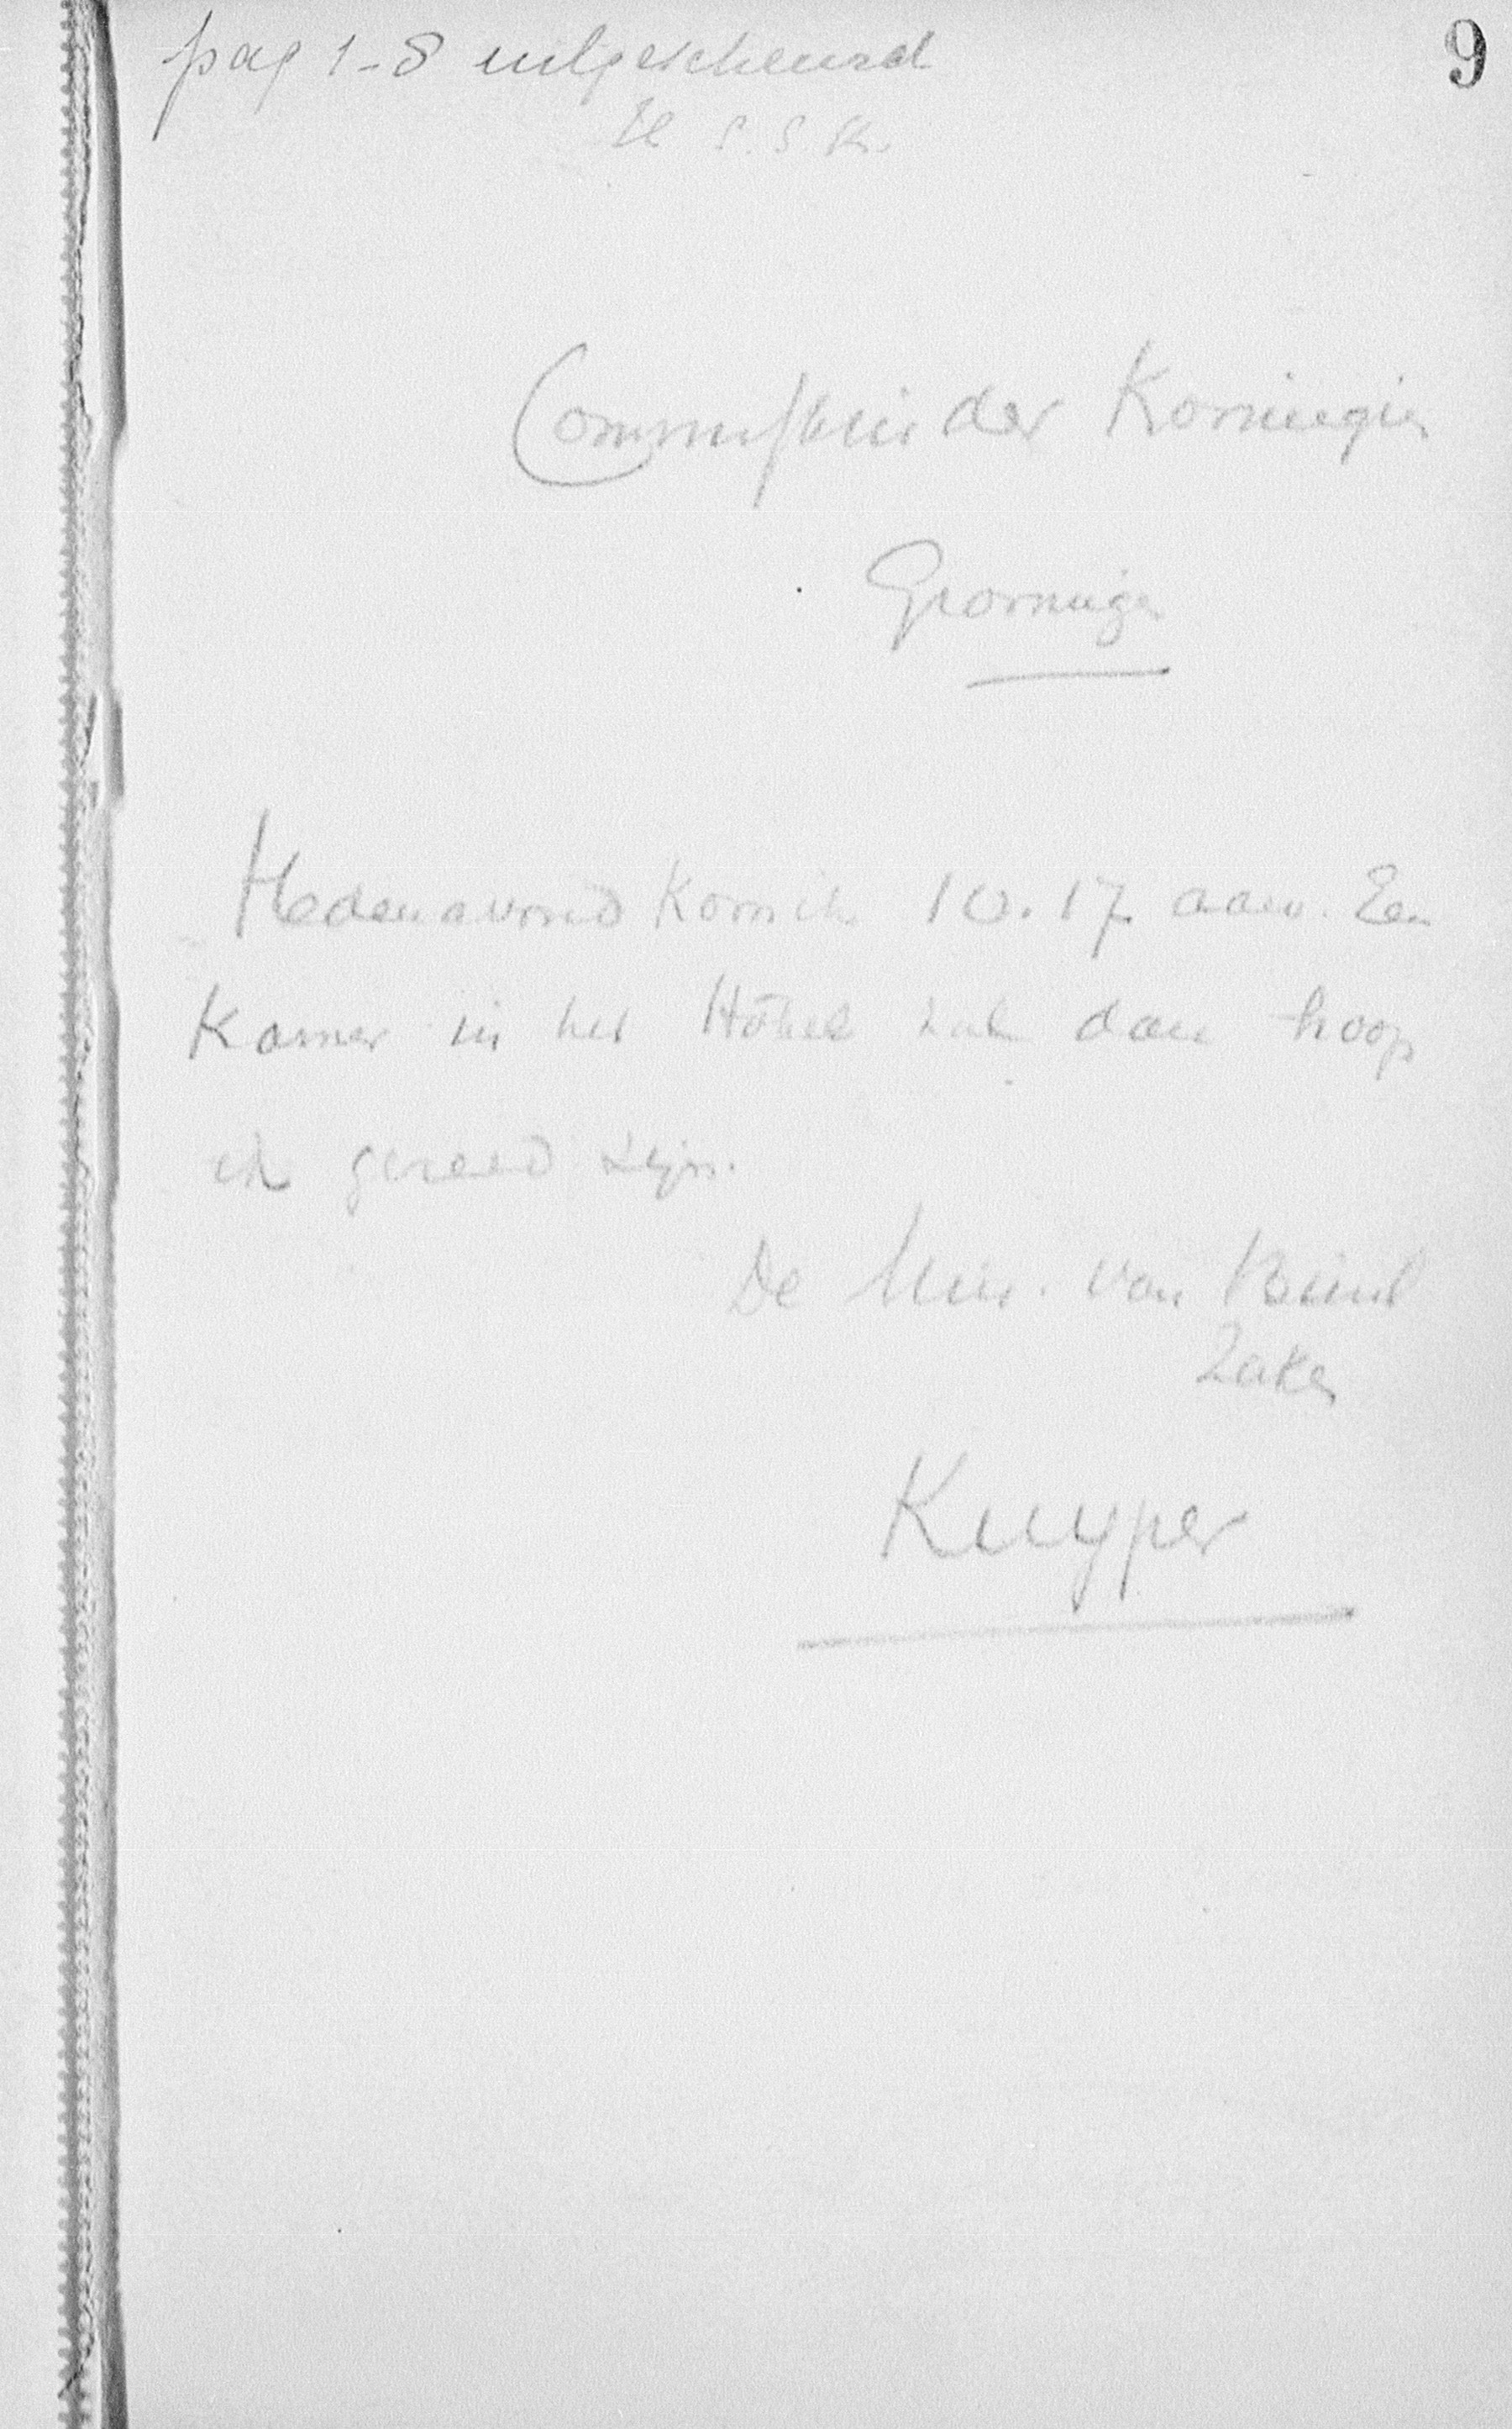 pag 1-8 uitgescheurd
9
Commissaris der Koningin
Groningen
Hedenavond kom ik 10.17 aan. Een
Kamer in het Hôtel zal dan hoop
ik gereed zijn.
De Min. van Binnl
Zaken
Kuyper